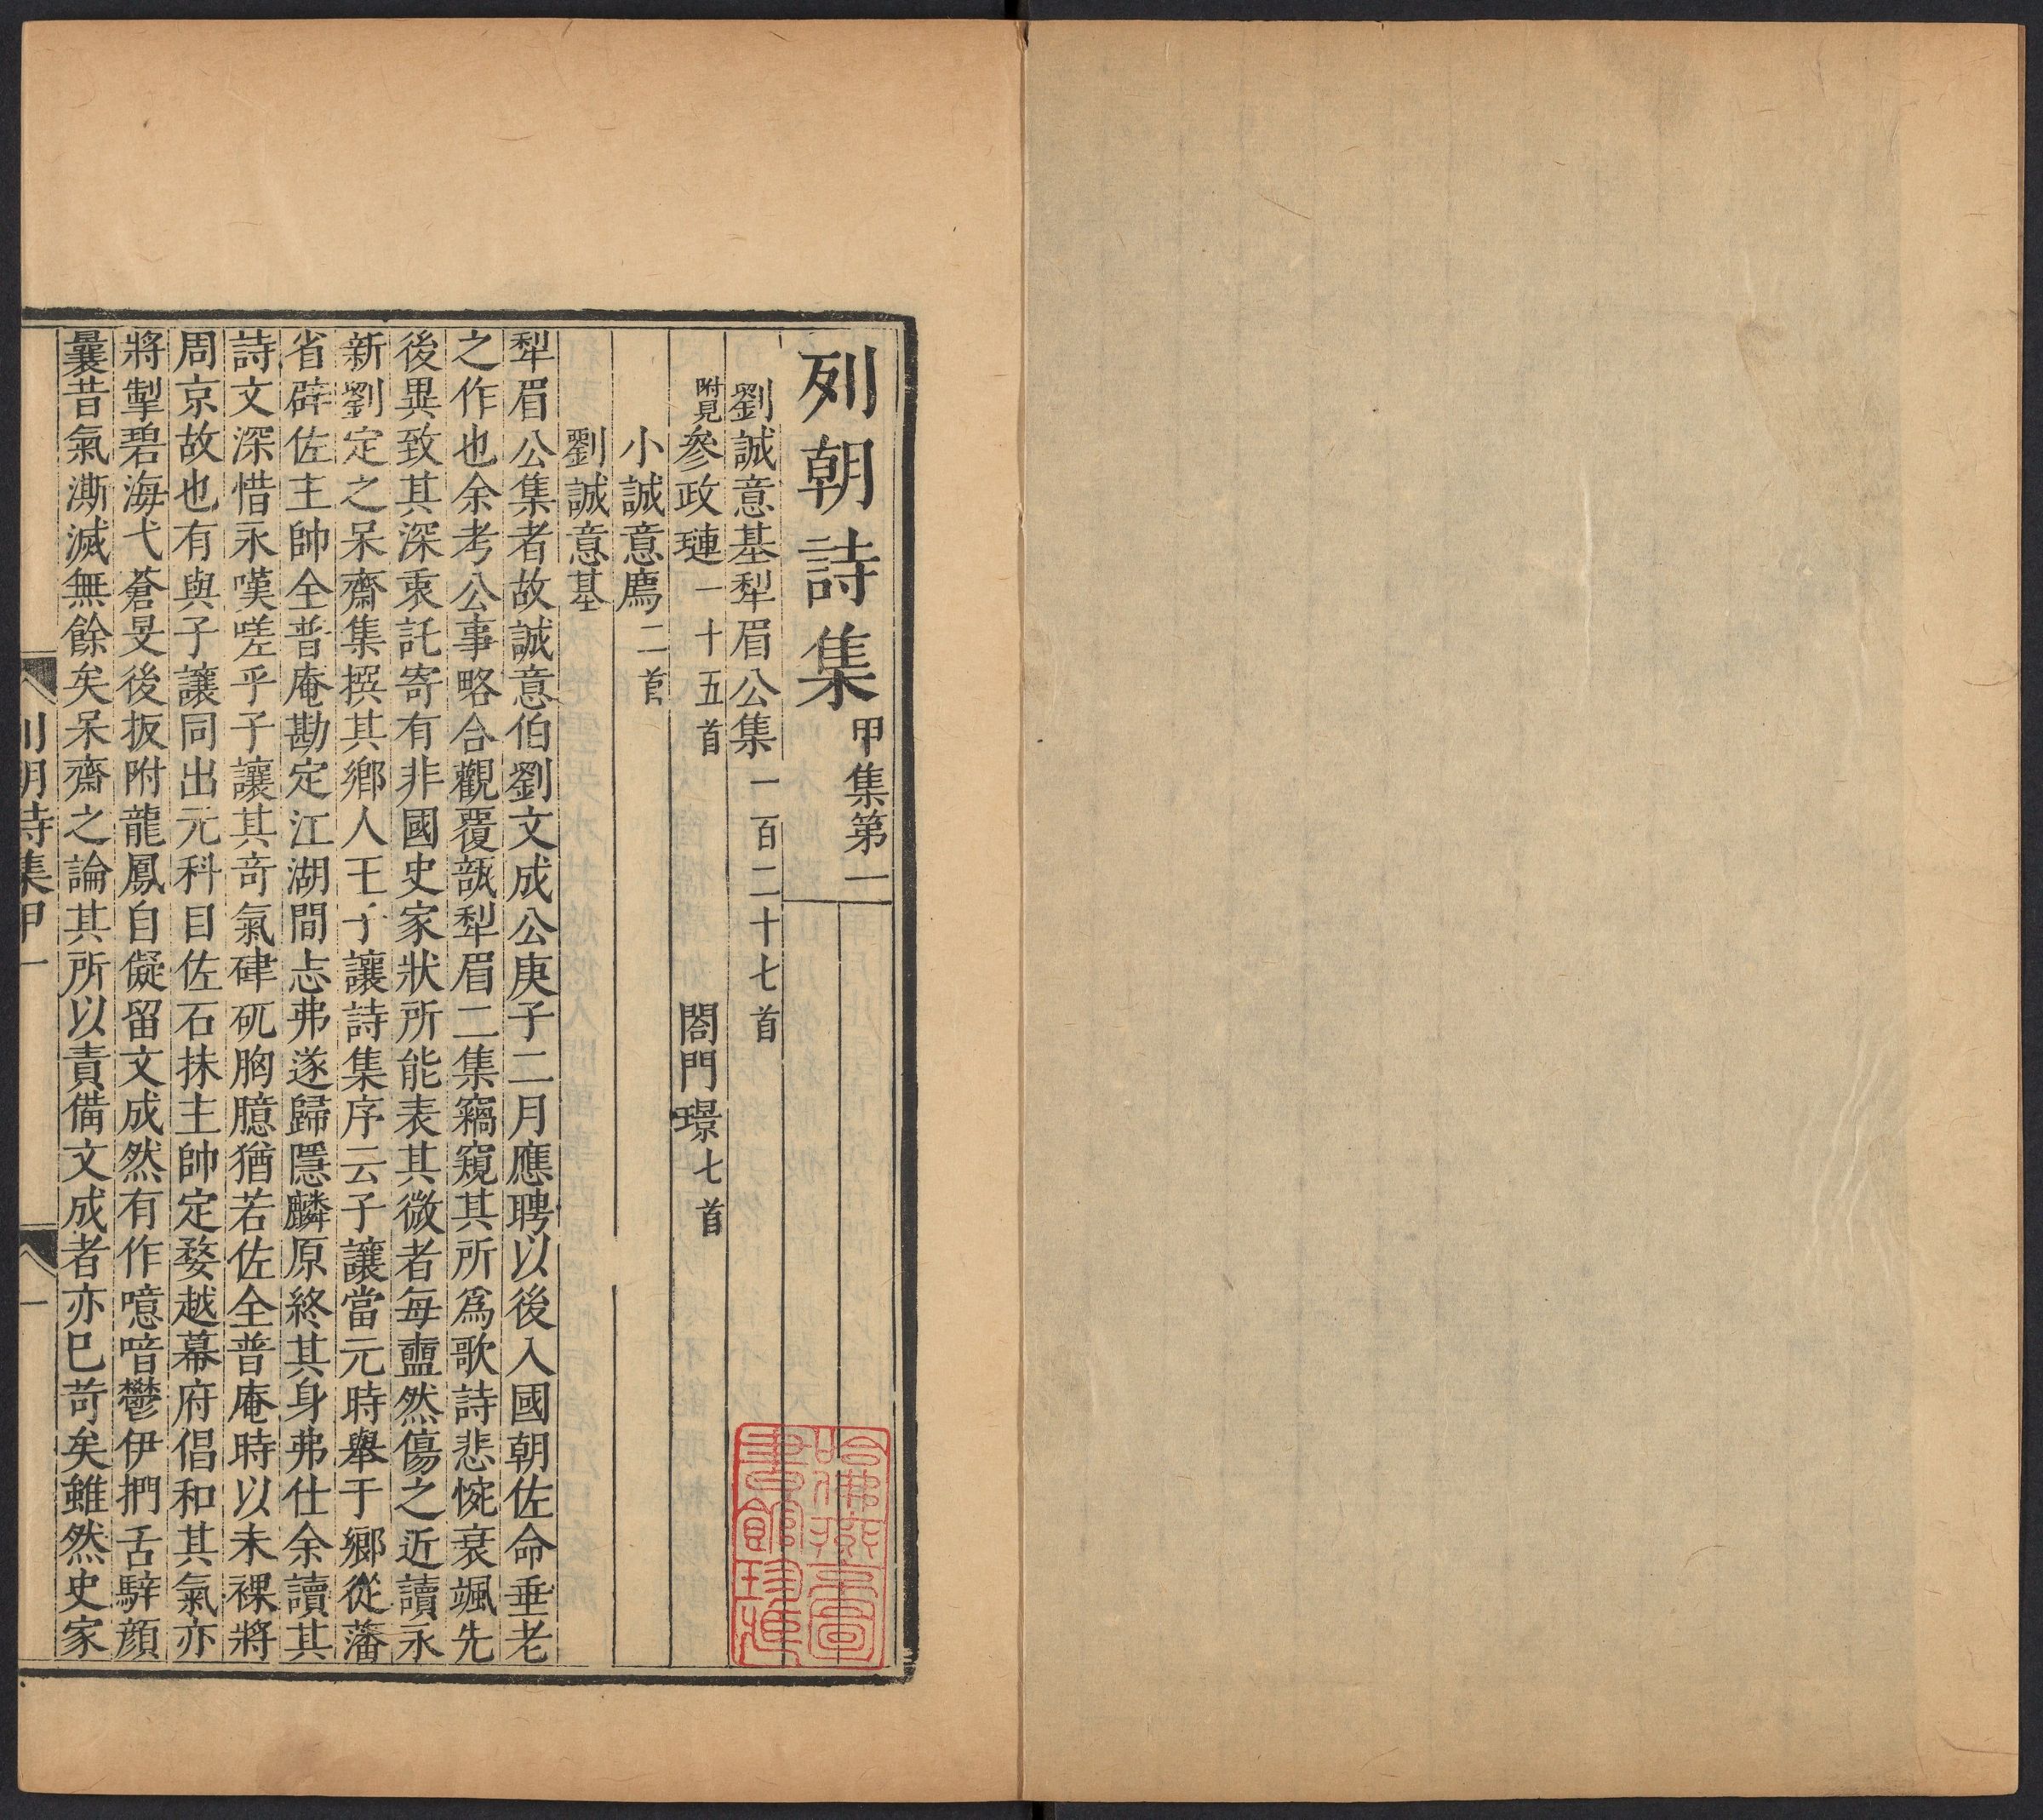 列朝詩集甲集第一
劉誠意基犁眉公集一百二十七首
附見參政璉一十五首 閤門璟七首
小誠意廌二首
劉誠意基
犁眉公集者故誠意伯劉文成公庚子二月應聘以後入國朝佐命垂老
之作也余考公事略合觀覆瓿犁眉二集竊窺其所爲歌詩悲惋衰颯先
後異致其深衷託寄有非國史家狀所能表其微者每衋然傷之近讀永
新劉定之呆齋集撰其鄉人王子讓詩集序云子讓當元時舉于鄉從藩
省辟佐主帥全普庵勘定江湖間志弗遂歸隱麟原終其身弗仕余讀其
詩文深惜永嘆嗟乎子讓其奇氣硉矹胸臆猶若佐全普庵時以未裸將
周京故也有與子讓同出元科目佐石抹主帥定婺越幕府倡和其氣亦
將掣碧海弋蒼旻後扳附龍鳳自儗留文成然有作噫喑鬱伊捫舌騂顏
曩昔氣澌滅無餘矣呆齋之論其所以責備文成者亦已苛矣雖然史家
列朝詩集甲一 一
哈佛燕京圖
書館珍藏